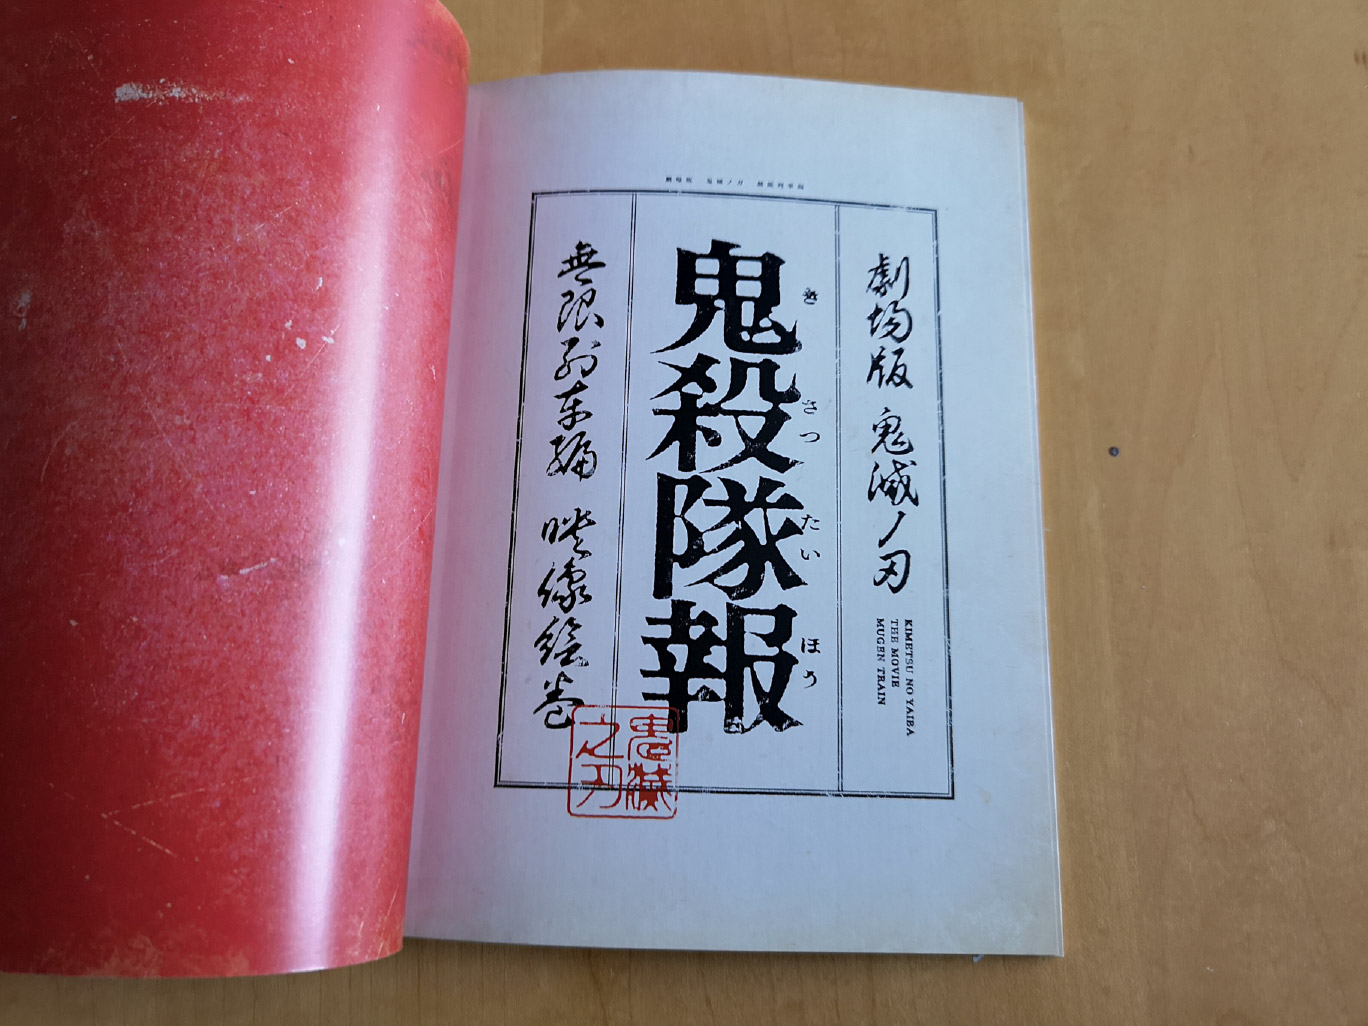 劇場版 鬼滅ノ刃 無限列車編
劇場版 鬼滅ノ刃
KIMETSU NO YAIBA
THE MOVIE
MUGEN TRAIN
鬼殺隊報
き さつ たい ほう
無限列車編 映像絵巻
鬼滅
之刃